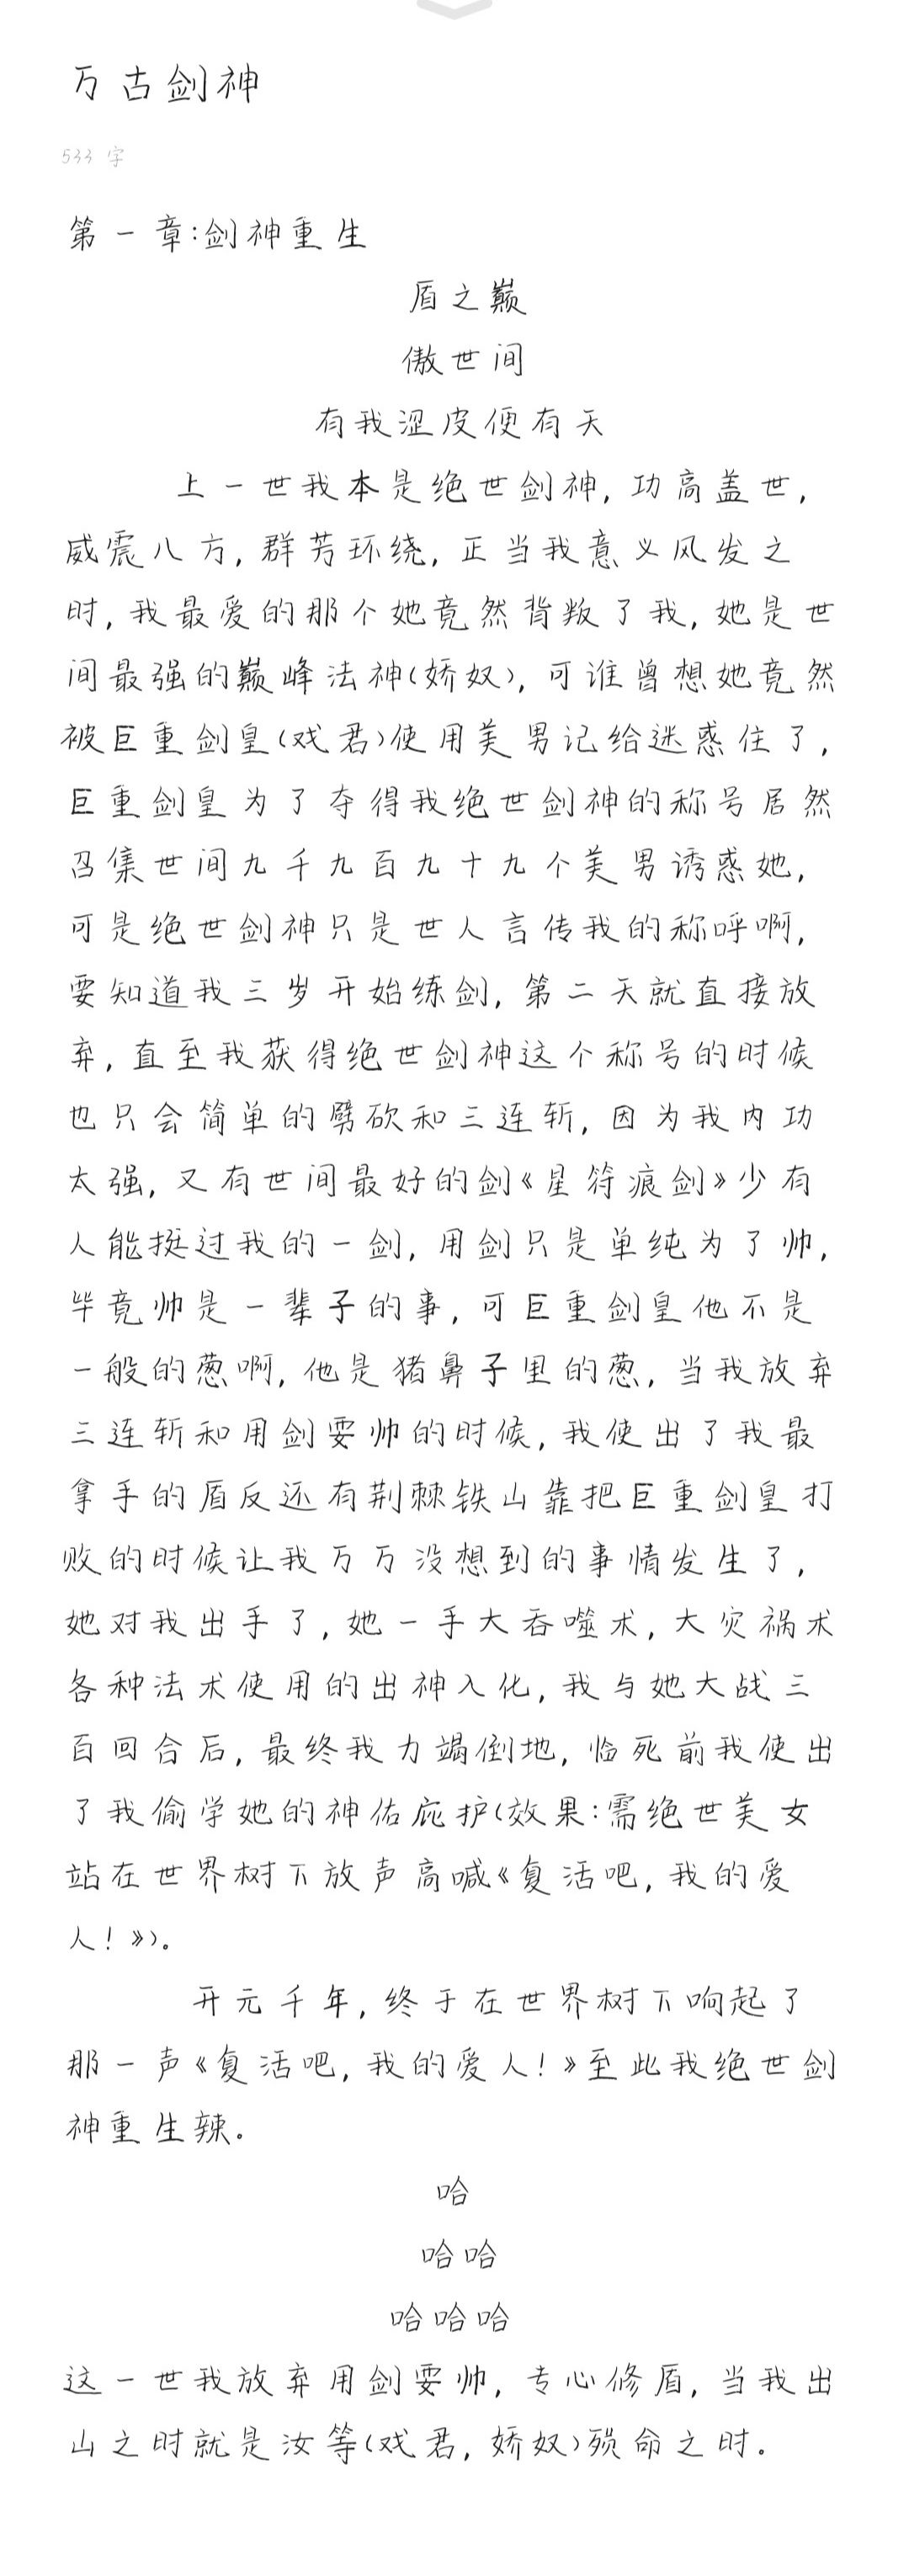 万古剑神
533 字
第一章:剑神重生
盾之巅
傲世间
有我涩皮便有天
上一世我本是绝世剑神,功高盖世,
威震八方,群芳环绕,正当我意义风发之
时,我最爱的那个她竟然背叛了我,她是世
间最强的巅峰法神(娇奴),可谁曾想她竟然
被巨重剑皇(戏君)使用美男记给迷惑住了,
巨重剑皇为了夺得我绝世剑神的称号居然
召集世间九千九百九十九个美男诱惑她,
可是绝世剑神只是世人言传我的称呼啊,
要知道我三岁开始练剑,第二天就直接放
弃,直至我获得绝世剑神这个称号的时候
也只会简单的劈砍和三连斩,因为我内功
太强,又有世间最好的剑《星符痕剑》少有
人能挺过我的一剑,用剑只是单纯为了帅,
毕竟帅是一辈子的事,可巨重剑皇他不是
一般的葱啊,他是猪鼻子里的葱,当我放弃
三连斩和用剑耍帅的时候,我使出了我最
拿手的盾反还有荆棘铁山靠把巨重剑皇打
败的时候让我万万没想到的事情发生了,
她对我出手了,她一手大吞噬术,大灾祸术
各种法术使用的出神入化,我与她大战三
百回合后,最终我力竭倒地,临死前我使出
了我偷学她的神佑庇护(效果:需绝世美女
站在世界树下放声高喊《复活吧,我的爱
人!》)。
开元千年,终于在世界树下响起了
那一声《复活吧,我的爱人!》至此我绝世剑
神重生辣。
哈
哈哈
哈哈哈
这一世我放弃用剑耍帅,专心修盾,当我出
山之时就是汝等(戏君,娇奴)殒命之时.